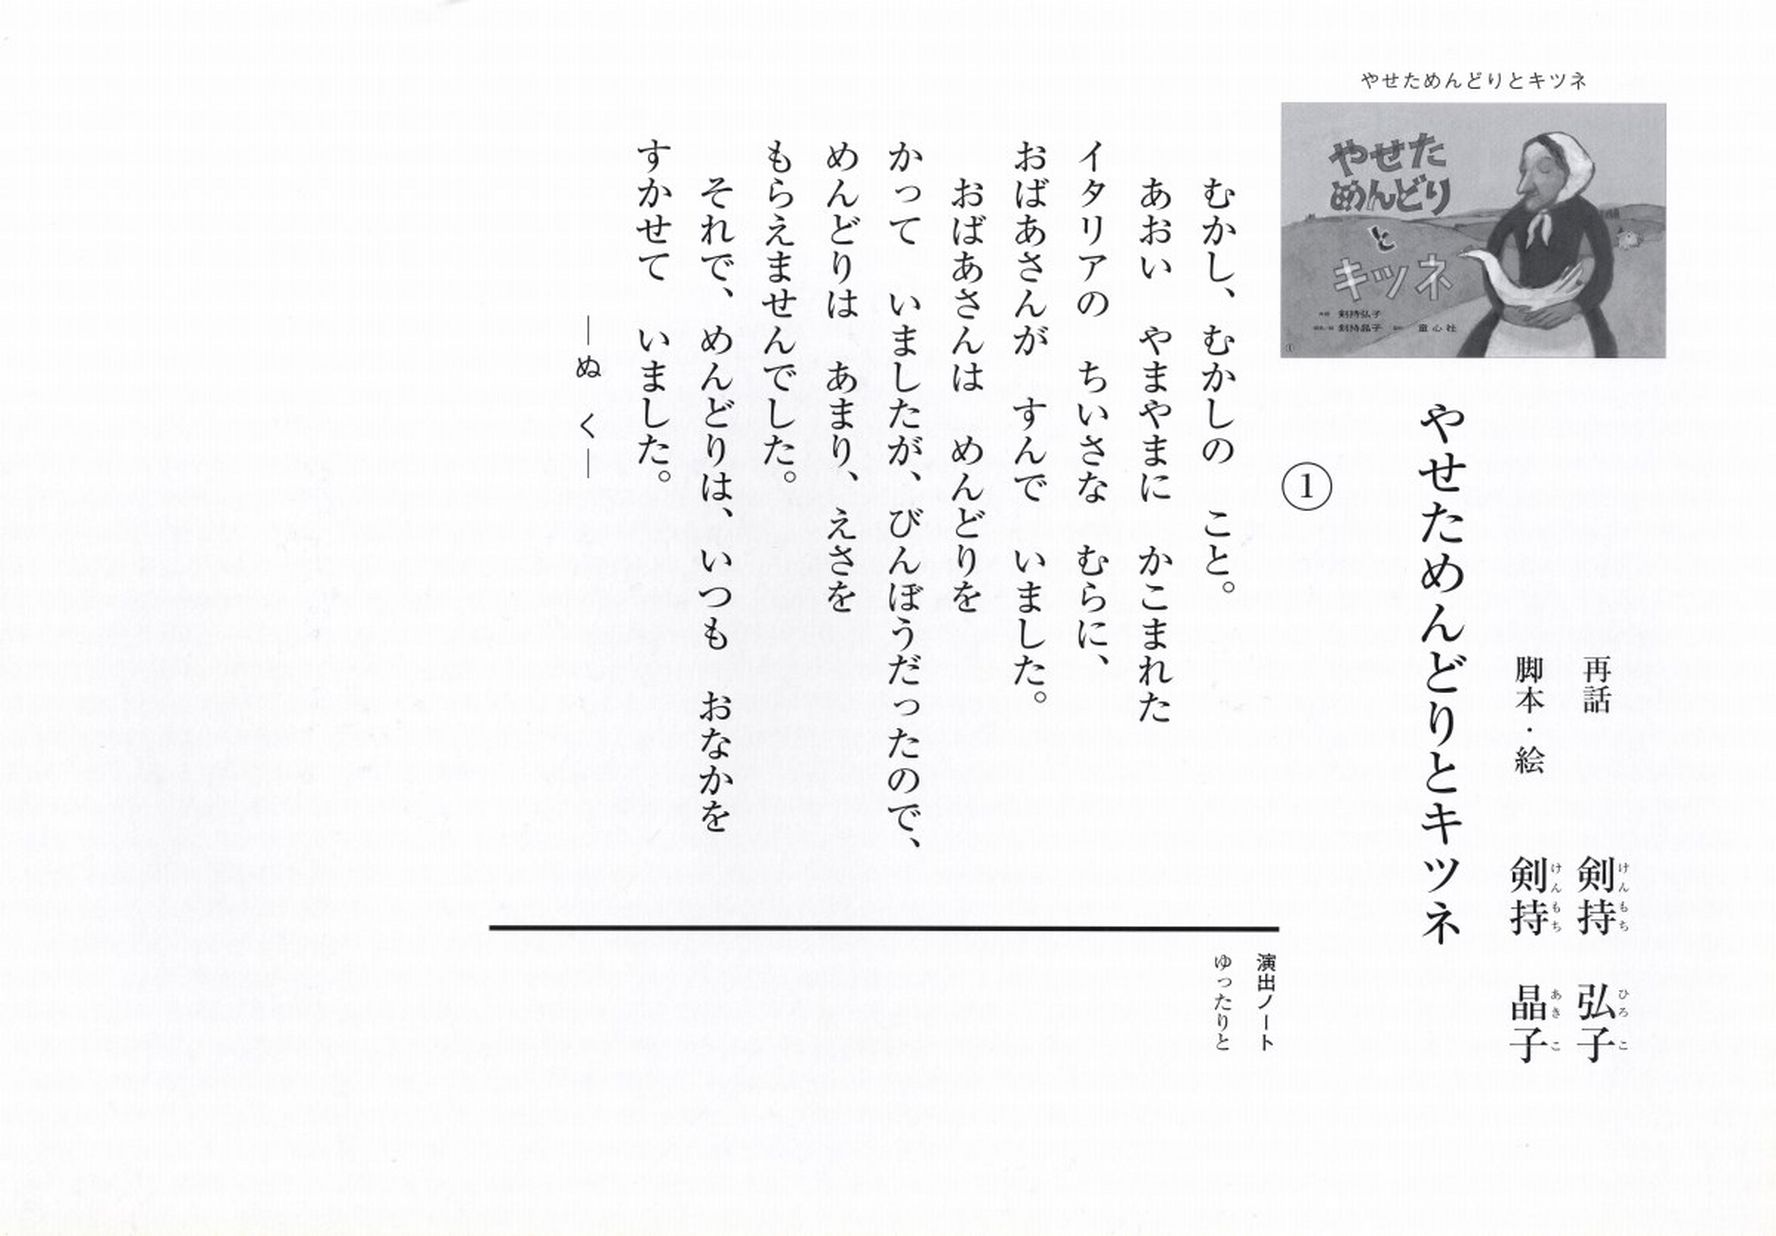 やせためんどりとキツネ
やせた
めんどり
と
キツネ
剣持弘子
剣持晶子
童心社
①
再話　剣持　弘子
けんもち　ひろこ
脚本・絵　剣持　晶子
けんもち　あきこ
やせためんどりとキツネ
①
むかし、むかしの　こと。
あおい　やまやまに　かこまれた
イタリアの　ちいさな　むらに、
おばあさんが　すんで　いました。
おばあさんは　めんどりを
かって　いましたが、びんぼうだったので、
めんどりは　あまり、えさを
もらえませんでした。
それで、めんどりは　いつも　おなかを
すかせて　いました。
―ぬ　く―
演出ノート
ゆったりと